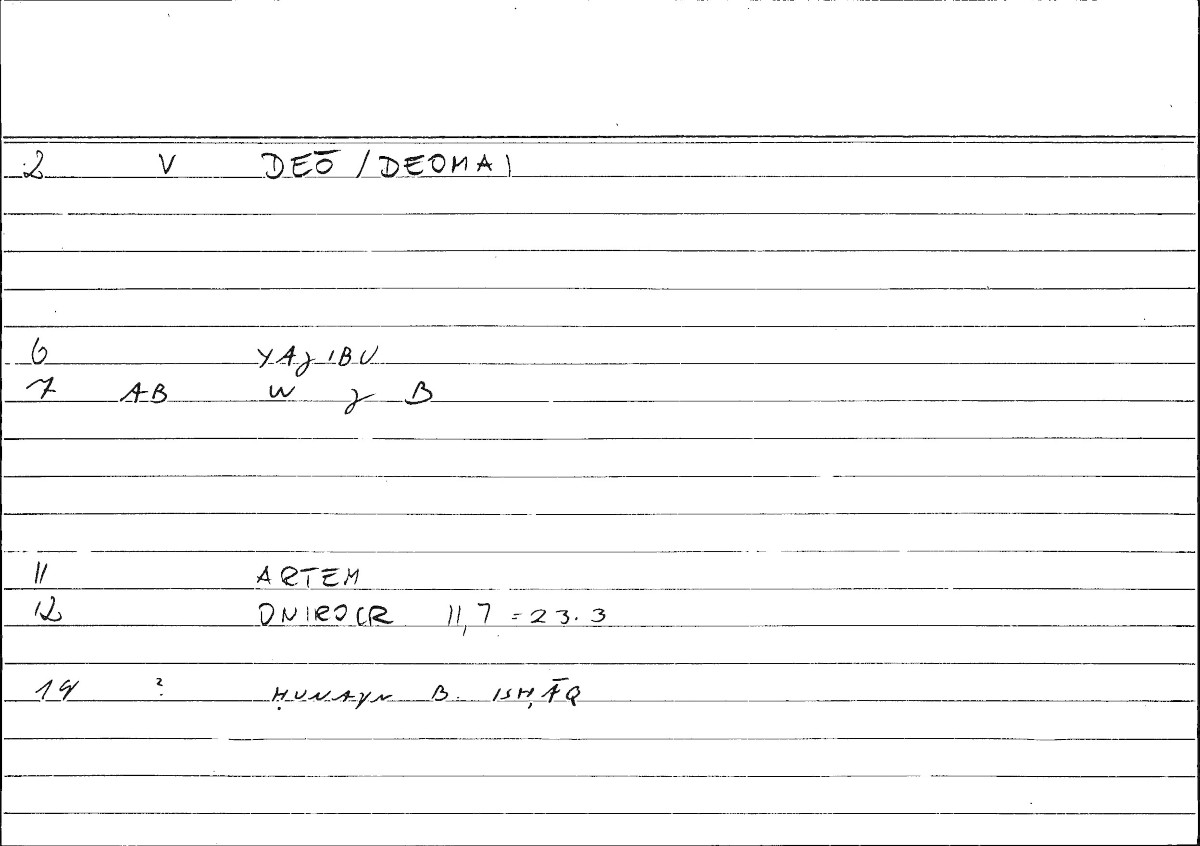 2 V DEŌ / DEOMAI
6 YAJIBU
7 AB W J B
11 ARTEM
12 ONIROCR 11,7 = 23.3
14 ? ḤUNAYN B. ISḤĀQ